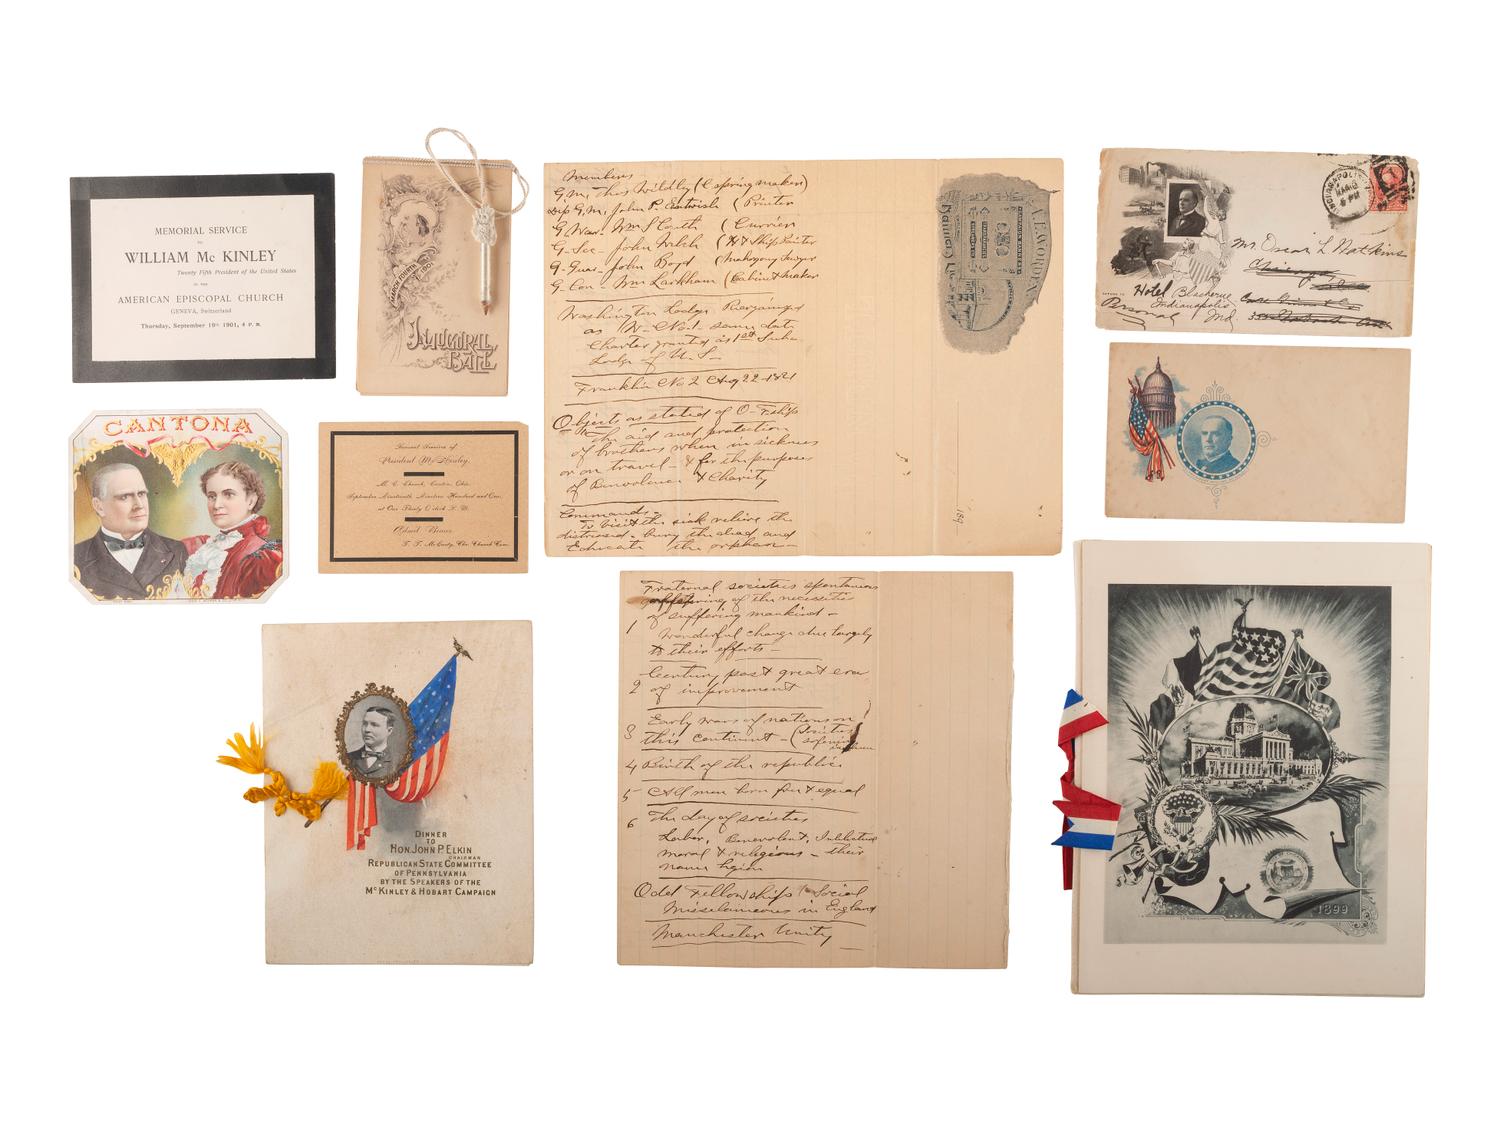 MEMORIAL SERVICE
TO
WILLIAM Mc KINLEY
Twenty Fifth President of the United States
IN THE
AMERICAN EPISCOPAL CHURCH
GENEVA, Switzerland
Thursday, September 19th 1901, 4 P. M.
MARCH FOURTH
1901
INAUGURAL
BALL
CANTONA
Funeral Services of
President McKinley.
M. E. Church, Canton, Ohio.
September Nineteenth Nineteen Hundred and One,
at One Thirty O'clock P. M.
Admit Bearer
DINNER
TO
HON. JOHN P. ELKIN
CHAIRMAN
REPUBLICAN STATE COMMITTEE
OF PENNSYLVANIA
BY THE SPEAKERS OF THE
McKINLEY & HOBART CAMPAIGN
Members
G.M. Thos Wildey (C spring maker)
Dep G.M. John P. Entwisle (Printer
G. War. Wm S Couth (Currier
G. Sec - John Welch (H & Ship Painter
G. Guar - John Boyd (Mahogany Sawyer
G. Con Wm Larkham (Cabinet maker
Washington Lodge Reorganized
as W- No 1- same date
Charter granted as 1st Sub-
Lodge of U. S-
Franklin No 2 Aug 22-1821
Objects as stated of O- F.ship
The aid and protection
of brothers when in sickness
or on travel - & for the purpose
of Benevolence & Charity
Commands-
To visit the sick relieve the
distressed - bury the dead and
Educate the orphan-
A. E. WORDEN
189
Fraternal societies spontaneous
offspring of the necessities
of suffering mankind -
1 Wonderful change due largely
to their efforts -
2 Century past great era
of improvement
3 Early wars of nations on
this continent - (Societies
4 Birth of the republic
5 All men born free & equal
6 The day of societies
Labor, Benevolent, Intellectual
moral & religious - their
name legion
Odd Fellowship Social
Misselaneous in England
Manchester Unity
INDIANAPOLIS
Mr. Oscar L Watkins
Chicago
Hotel Blacherne
Indianapolis
Personal Ind
1899